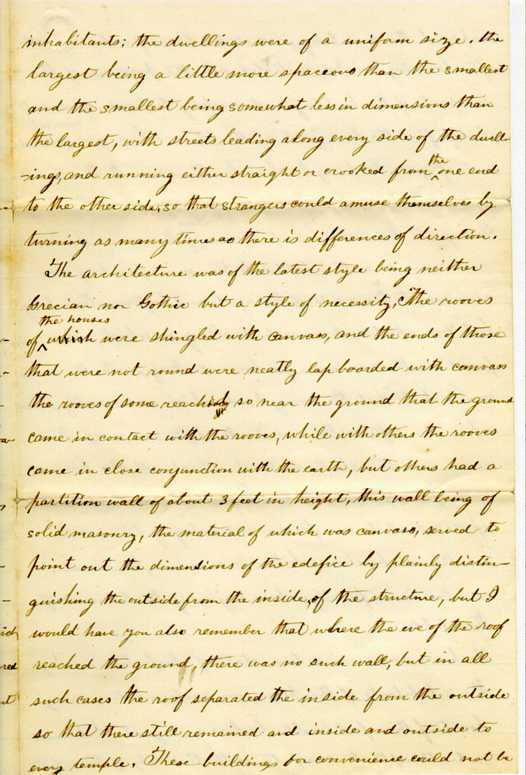 inhabitants; the dwellings were of a uniform size. the
largest being a little more spaceous than the smallest
and the smallest being somewhat less in dimensions than
the largest, with streets leading along every side of the dwell-
-ings, and running either straight or crooked from the one end
to the other side, so that strangers could amuse themselves by
turning as many times as there is differences of direction.
The architecture was of the latest style being neither
Grecian nor Gothic but a style of necessity, The rooves
the houses
of which were shingled with canvass, and the ends of those
that were not round were neatly lap boarded with canvass
the rooves of some reached so near the ground that the ground
came in contact with the rooves, while with others the rooves
came in close conjunction with the earth, but others had a
partition wall of about 3 feet in height, this wall being of
solid masonry, the material of which was canvass, served to
point out the dimensions of the edefice by plainly distin-
guishing the outside from the inside, of the structure, but I
would have you also remember that where the eve of the roof
reached the ground, there was no such wall, but in all
such cases the roof separated the inside from the outside
so that there still remained and inside and outside to
every temple. These buildings for convenience could not be